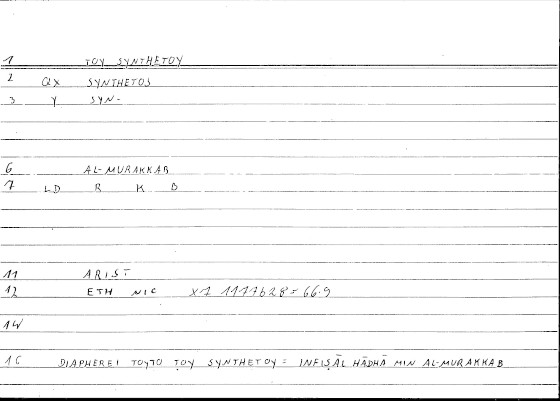 1 TOY SYNTHETOY
2 QX SYNTHETOS
3 Y SYN-
6 AL-MURAKKAB
7 LD R K B
11 ARIST
12 ETH NIC X7 1177b28=66.9
14
15 DIAPHEREI TOYTO TOY SYNTHETOY = INFIṢĀL HĀDHĀ MIN AL-MURAKKAB